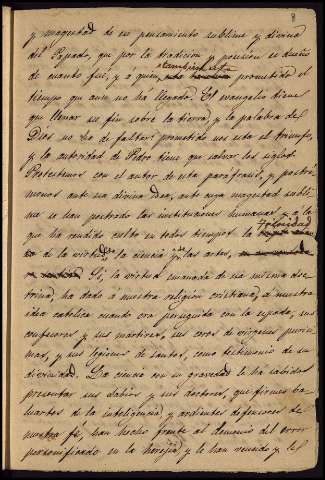 8
y magestad de su pensamiento sublime y divina
del Papado, que por la tradicion y posesion es dueño
de cuanto fué, y a quien, tambien está prometido el
tiempo que aun no ha llegado. El evangelio tiene
que llenar su fin sobre la tierra, y la palabra de
Dios no ha de faltar: prometido nos está el triunfo,
y la autoridad de Pedro tiene que salvar los siglos.
Protestemos con el autor de esta parafrasis, y postré-
monos ante esa divina idea, ante cuya magestad subli-
me se han postrado las instituciones humanas, y a la
que ha rendido culto en todos tiempos la
felicidad
de la virtud, la ciencia y las artes,
Si, la virtud emanada de esa misma doc-
trina, ha dado a nuestra religion cristiana, á nuestra
idea catolica cuando era perseguida con la espada, sus
confesores y sus martires, sus coros de virgenes purisi-
mas, y sus legiones de santos, como testimonio de su
divinidad. La ciencia con su gravedad le ha sabido
presentar sus sabios y sus doctores, que firmes ba-
luartes de la inteligencia y ardientes defensores de
nuestra fé, han hecho frente al demonio del error
personificado en la heregia y le han vencido y le